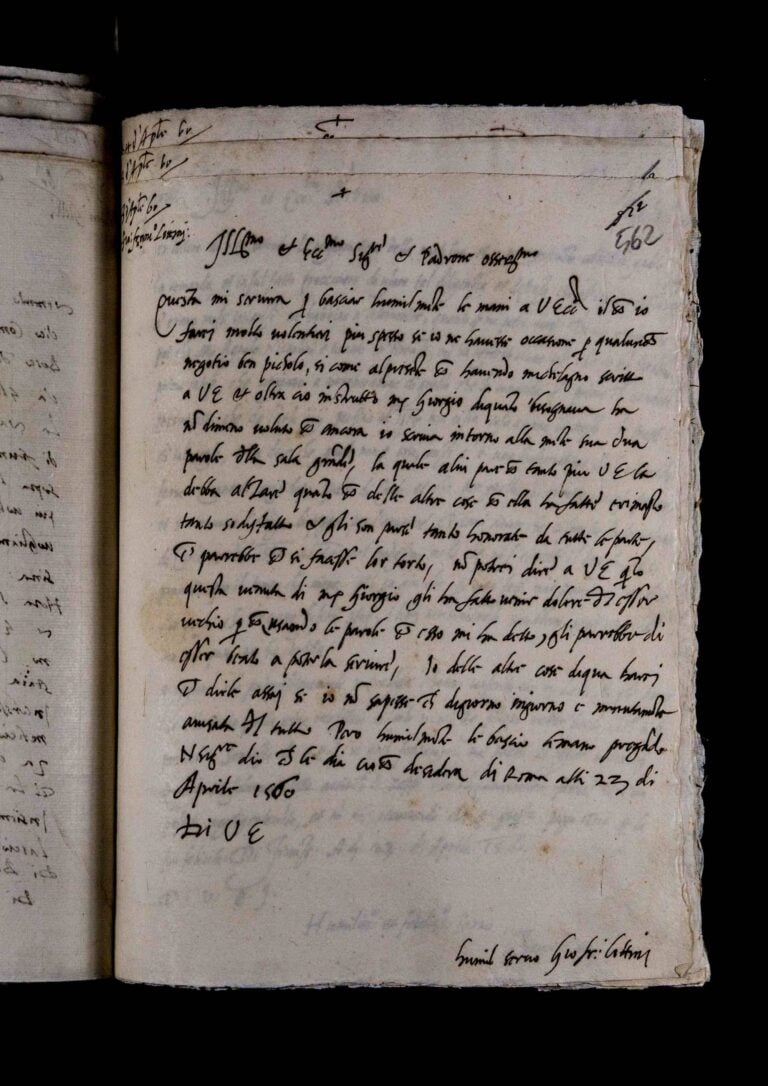 +
562
Ill.mo et Ecc.mo Sig.re et Padrone osser.mo
Questa mi servira p basciar humilmte le mani a V Ecc il ch io
farei molto volentieri piu spesso se io ne havesse occasione p qualunch
negotio ben picholo, si come al presnte ch havendo michelagno scritto
a V E et oltra cio instrutto mr Giorgio di quato bisognava ha
nō dimeno voluto ch ancora io scriva intorno alla mte sua dua
parole dlla sala grāde, la quale a lui pare ch tanto piu V E la
debba alzare quato ch delle altre cose ch ella ha fatte e rimasto
tanto sodisfatto et gli son parse tanto honorate da tutte le parte,
ch parrebbe ch si facesse lor torto, nō potrei dire a V E qto
questa venuta di mr Giorgio gli ha fatto venir dolore dl esser
vechio p ch usando le parole ch esso mi ha detto, gli parrebbe di
esser beato a poterla servire, Io delle altre cose di qua harei
ch dirle assai se io nō sapesse ch di giorno in giorno e minutamte
avisata dl tutto Pero humilmte le bascio le mano pregādo
N Sig.re dio ch le dia cio ch desidera di Roma alli 22 di
Aprile 1560
Di V E
humil servo Gio fr: lottini